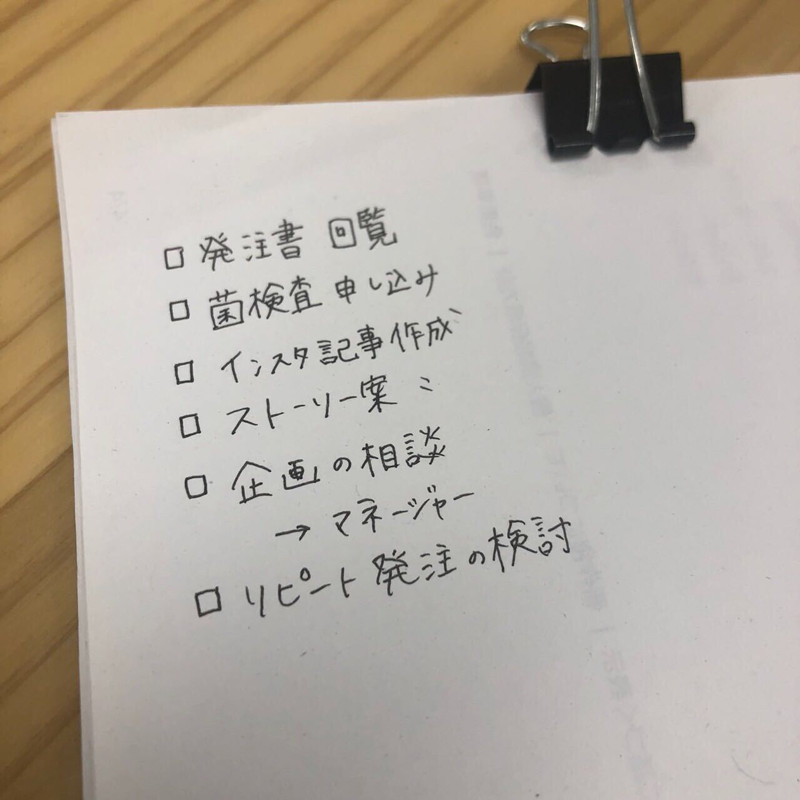 □ 発注書 回覧
□ 菌検査 申し込み
□ インスタ記事作成
□ ストーリー案 〃
□ 企画の相談
→ マネージャー
□ リピート発注の検討